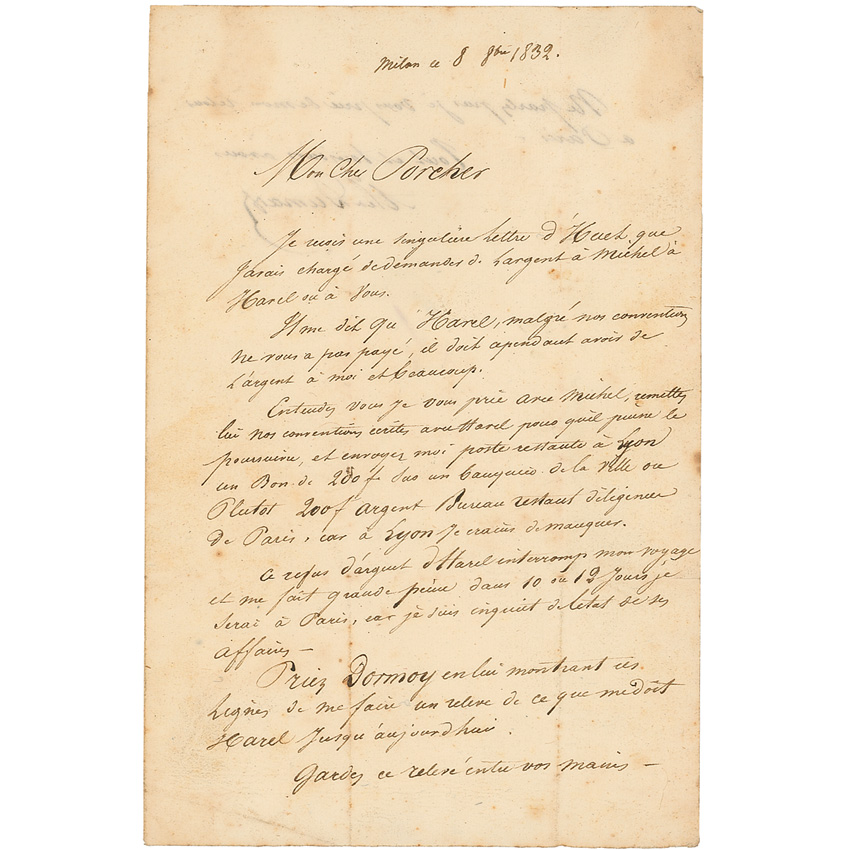 Milan ce 8 8bre 1832.
Mon Cher Porcher
Je reçois une singulière lettre d'Huet que
J'avais chargé de demander de l'argent à Michel à
Harel ou à Vous.
Il me dit qu'Harel, malgré nos conventions
ne vous a pas payé, il doit cependant avoir de
l'argent à moi et beaucoup.
Entendez vous je vous prie avec Michel, remettez
lui nos conventions écrites avec Harel pour qu'il puisse le
poursuivre, et envoyez moi poste restante à Lyon
un Bon de 200 f sur un Banquier de la Ville ou
Plutot 200 f argent Bureau restant diligence
de Paris, car à Lyon Je crains de manquer.
Ce refus d'argent d'Harel interromp mon voyage
et me fait grande peine dans 10 ou 12 Jours je
Serai à Paris, car je suis inquiet de l'état de ses
affaires —
Priez Dormoy en lui montrant ces
Lignes de me faire un relevé de ce que me doit
Harel Jusqu'aujourd'hui.
Gardez ce relevé entre vos mains —